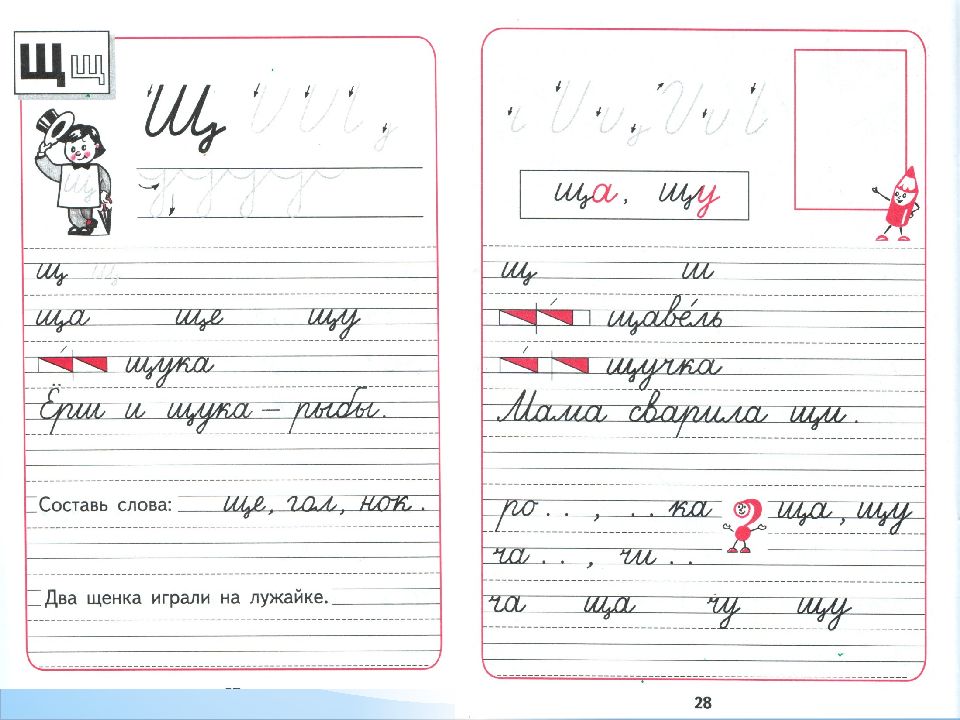 Щ щ
Щ
Щ
щ Щ
ща ще щу
щука
Ёрш и щука – рыбы.
Составь слова: ще, гол, нок.
Два щенка играли на лужайке.
ща, щу
щ ш
щаве́ль
щучка
Мама сварила щи.
ро . . , . . ка ? ща, щу
ча . . , чи . .
ча ща чу щу
28